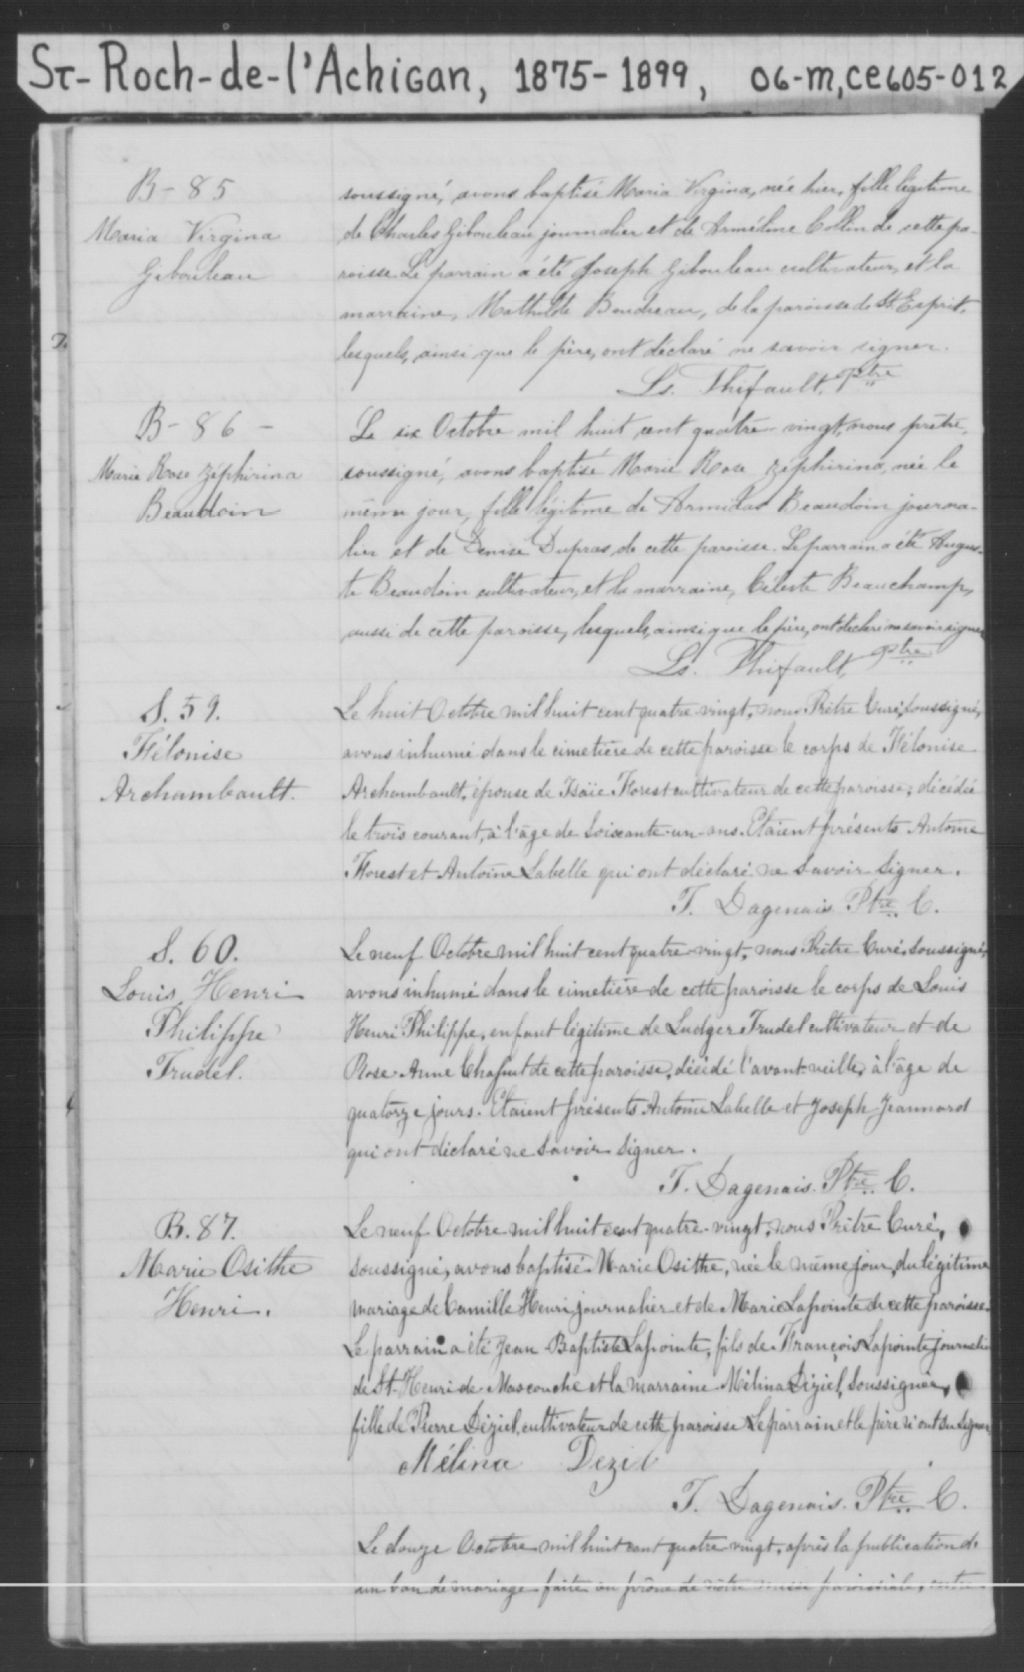 St-Roch-de-l'Achigan, 1875-1899, 06-M, CE605-012
B-85
Maria Virgina
Gibouleau
soussigné, avons baptisé Maria Virgina, née hier, fille légitime
de Charles Gibouleau journalier et de Arméline Collin de cette pa-
roisse. Le parrain a été Joseph Gibouleau cultivateur, et la
marraine, Mathilde Beaudreau, de la paroisse de St. Esprit,
lesquels, ainsi que le père, ont déclaré ne savoir signer.
Ls. Thifault, Ptre
B-86-
Marie Rose Zéphirina
Beaudoin
Le six Octobre mil huit cent quatre-vingt, nous prêtre,
soussigné, avons baptisé Marie Rose Zéphirina, née le
même jour, fille légitime de Armidas Beaudoin journa-
lier et de Denise Dupras, de cette paroisse. Le parrain a été Augus-
te Beaudoin cultivateur, et la marraine, Céleste Beauchamp,
aussi de cette paroisse, lesquels, ainsi que le père, ont déclaré ne savoir signer
Ls. Thifault, Ptre
S. 59.
Hélonise
Archambault.
Le huit Octobre mil huit cent quatre-vingt, nous Prêtre Curé, soussigné,
avons inhumé dans le cimetière de cette paroisse le corps de Hélonise
Archambault, épouse de Isaïe Forest cultivateur de cette paroisse, décédée
le trois courant, à l'âge de soixante-un-ans. Étaient présents Antoine
Forest et Antoine Labelle qui ont déclaré ne savoir signer.
T. Dagenais Ptre C.
S. 60.
Louis Henri
Philippe
Trudel.
Le neuf Octobre mil huit cent quatre-vingt, nous Prêtre Curé, soussigné,
avons inhumé dans le cimetière de cette paroisse le corps de Louis
Henri Philippe, enfant légitime de Ludger Trudel cultivateur et de
Rose-Anne Chaput de cette paroisse, décédé l'avant-veille, à l'âge de
quatorze jours. Étaient présents Antoine Labelle et Joseph Jeannard
qui ont déclaré ne savoir signer.
T. Dagenais. Ptre C.
B. 87.
Marie Osithe
Henri.
Le neuf Octobre mil huit cent quatre-vingt, nous Prêtre Curé,
soussigné, avons baptisé Marie Osithe, née le même jour, du légitime
mariage de Camille Henri journalier et de Marie Lapointe de cette paroisse.
Le parrain a été Jean Baptiste Lapointe, fils de François Lapointe journalier
de St-Henri de Mascouche et la marraine Mélina Déziel, soussignée,
fille de Pierre Déziel, cultivateur de cette paroisse. Le parrain et le père n'ont su signer
Mélina Dezil
T. Dagenais. Ptre C.
Le douze Octobre mil huit cent quatre-vingt, après la publication de
un ban de mariage faite au prône de notre messe paroissiale, entre